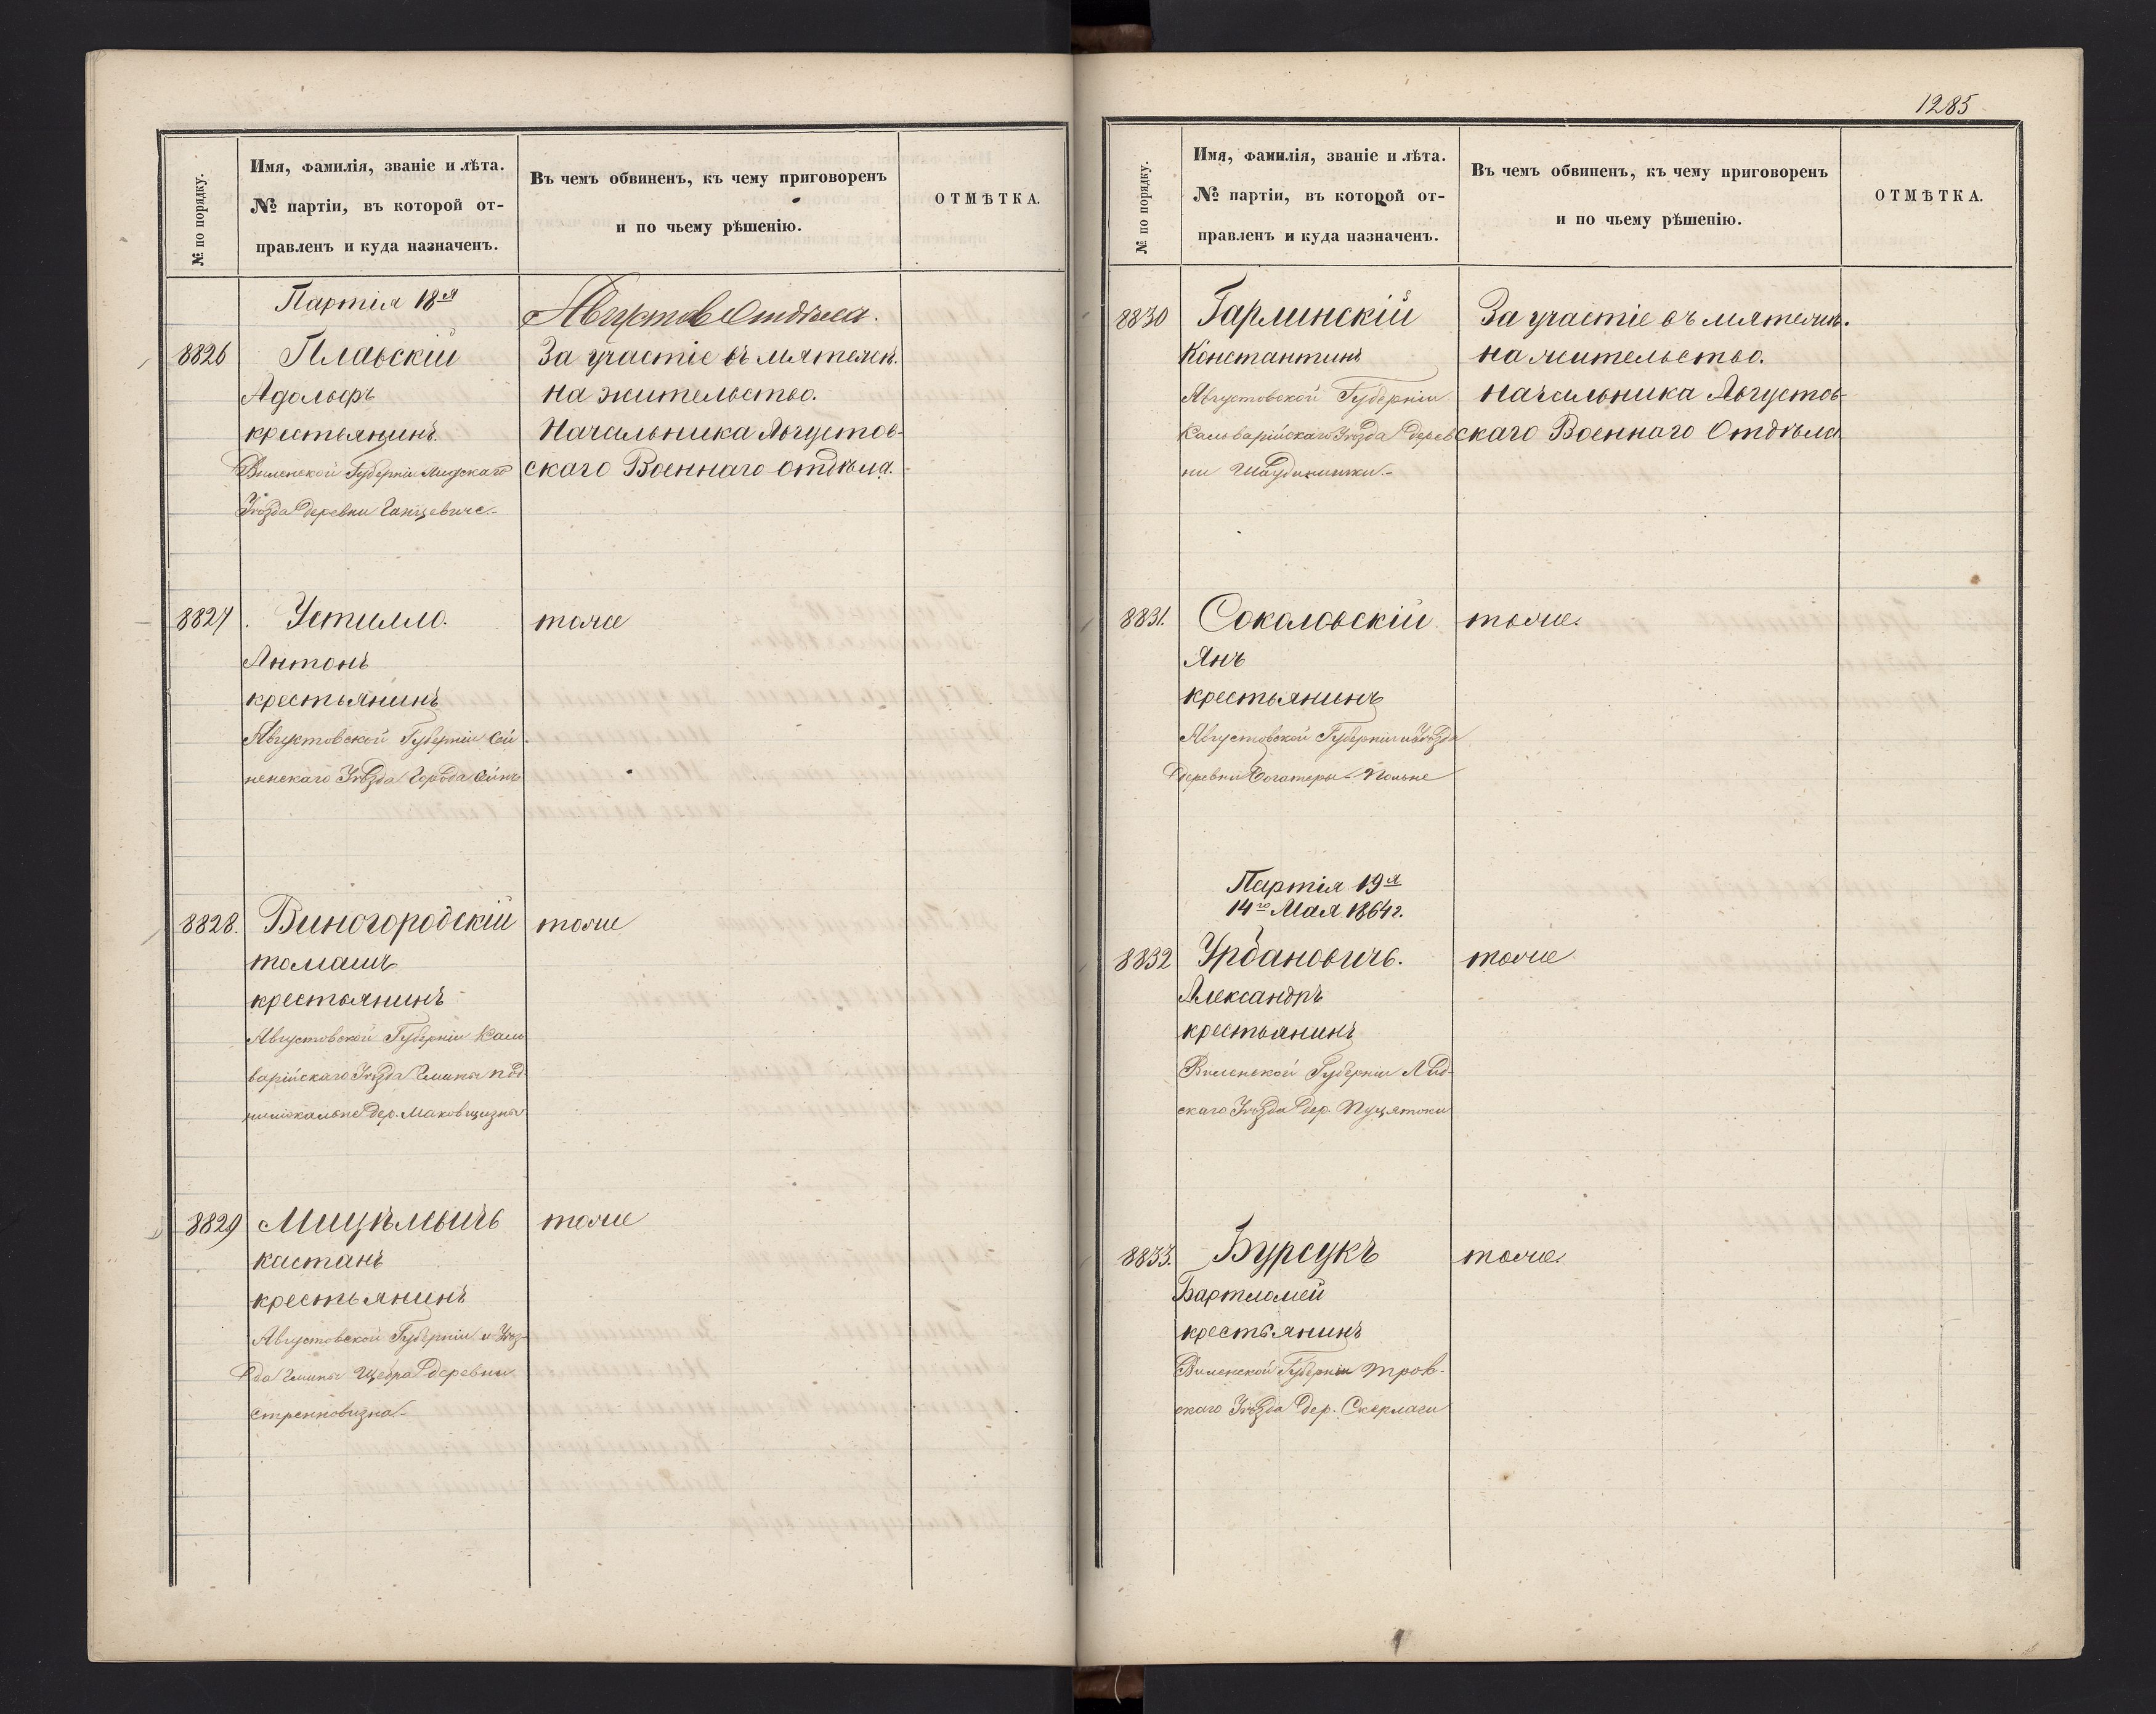 № по порядку.
Имя, фамилія, званіе и лѣта.
№ партіи, въ которой от-
правленъ и куда назначенъ.
Въ чемъ обвиненъ, къ чему приговоренъ
и по чьему рѣшенію.
ОТМѢТКА.
Партія 18я
Августов Отдѣла.
8826
Плавскій
Адольфъ
крестьянинъ.
Виленской Губерніи Лидскаго
Уѣзда деревни Ганцевиче-
За участіе въ мятежѣ.
на жительство.
Начальника Августов-
скаго Военнаго Отдѣла.
8827
Устилло.
Антонъ
крестьянинъ
Августовской Губерніи Сей
ненскаго Уѣзда Города Сейнъ
тоже
8828.
Виногородскій
томашъ
крестьянинъ
Августовской Губерніи Каль
варійскаго Уѣзда Гмина под-
дер. Маковщизны
тоже
8829
Мицкѣвичъ
каетанъ
крестьянинъ
Августовской Губерніи и Уѣз-
да Гмины Щебра деревни
Стренковизна-
тоже
1285
№ по порядку.
Имя, фамилія, званіе и лѣта.
№ партіи, въ которой от-
правленъ и куда назначенъ.
Въ чемъ обвиненъ, къ чему приговоренъ
и по чьему рѣшенію.
ОТМѢТКА.
8830
Гарлинскій
Константинъ
Августовской Губерніи
Кальварійскаго Уѣзда дерев
ни
За участіе въ мятежѣ.
на жительство.
начальника Августов-
скаго Военнаго Отдѣла
8831.
Соколовскій
Янъ
крестьянинъ
Августовской Губерніи и Уѣзда
деревни Богатеры-Польне
тоже.
Партія 19я
14го Мая 1864г.
8832
Урбановичъ.
Александръ
крестьянинъ
Виленской Губерніи Лид-
скаго Уѣзда дер. Пуцятоки
тоже
8833.
Бурсукъ
Бартломей
крестьянинъ
Виленской Губерніи трок-
скаго Уѣзда дер. Скерлаги
тоже.